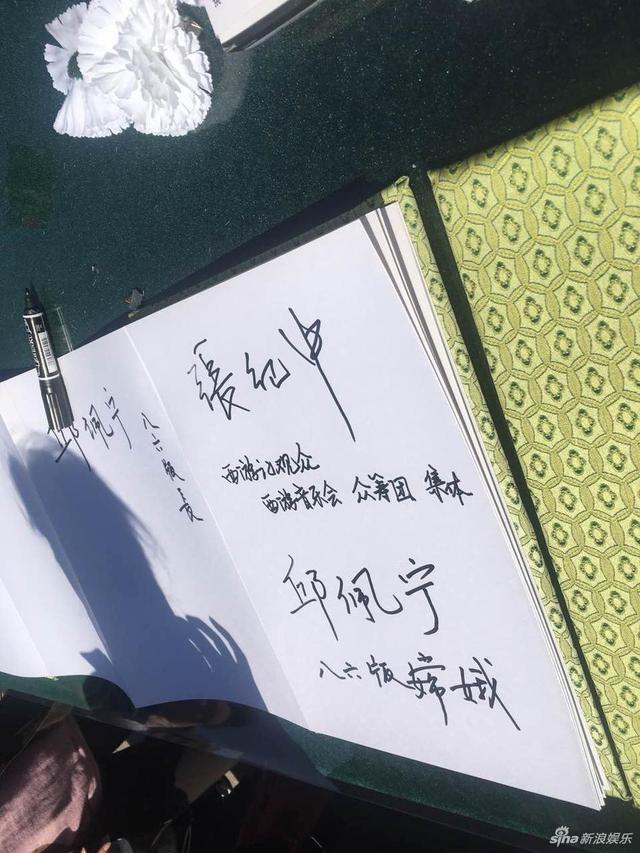 張纪中
西游记观众
西游音乐会 众筹团 集体
邱佩宁
八六版嫦娥
邱佩宁
八六版
sina新浪娱乐